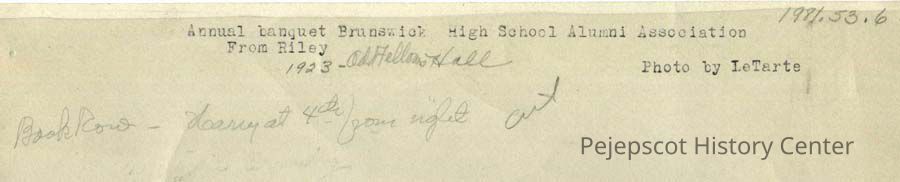 1981.53.6
Annual banquet Brunswick High School Alumni Association
From Riley
1923 - Odd Fellows Hall
Photo by LeTarte
Back Row - Harry at 4th from right
Pejepscot History Center